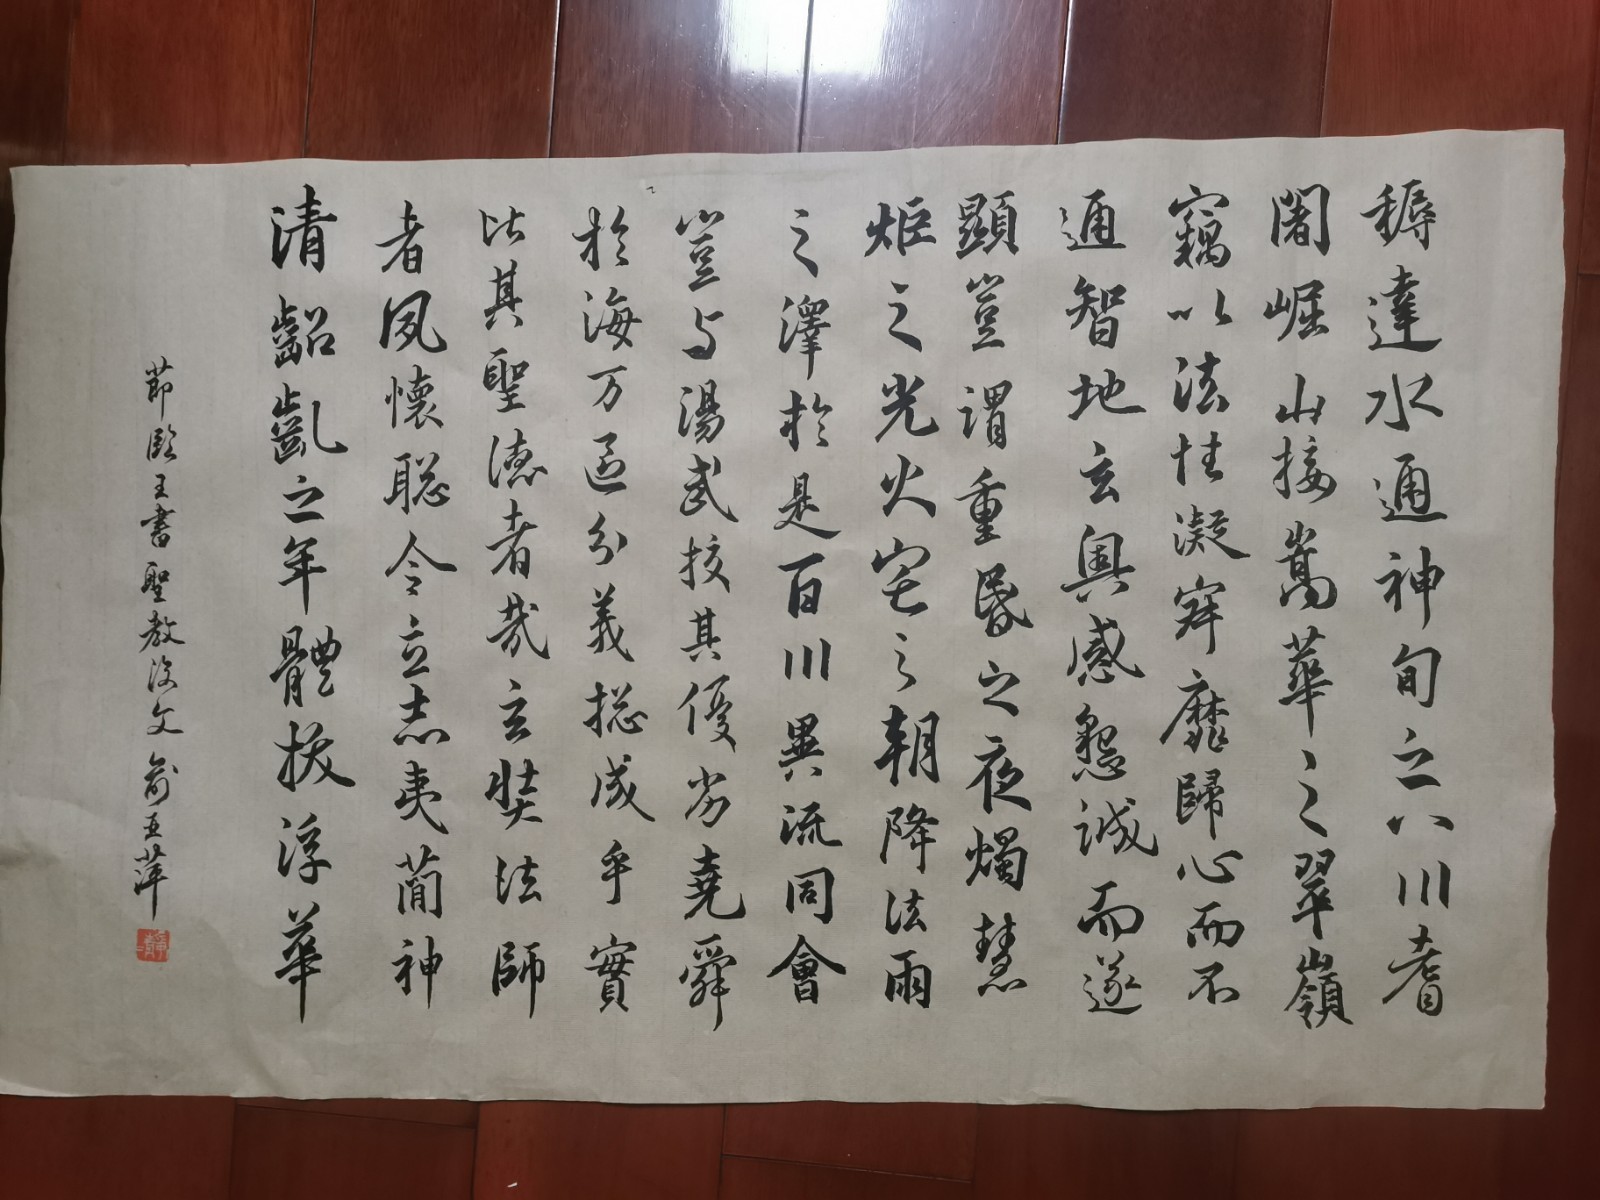 耨達水通神甸之八川耆
闍崛山接嵩華之翠嶺
竊以法性凝寂靡歸心而不
通智地玄奧感懇誠而遂
顯豈謂重昏之夜燭慧
炬之光火宅之朝降法雨
之澤於是百川異流同會
豈与湯武挍其優劣堯舜
於海万區分義揔成乎實
比其聖德者哉玄奘法師
者夙懷聡令立志夷蕳神
清齠齔之年體拔浮華
節臨王書聖教文俞亚萍